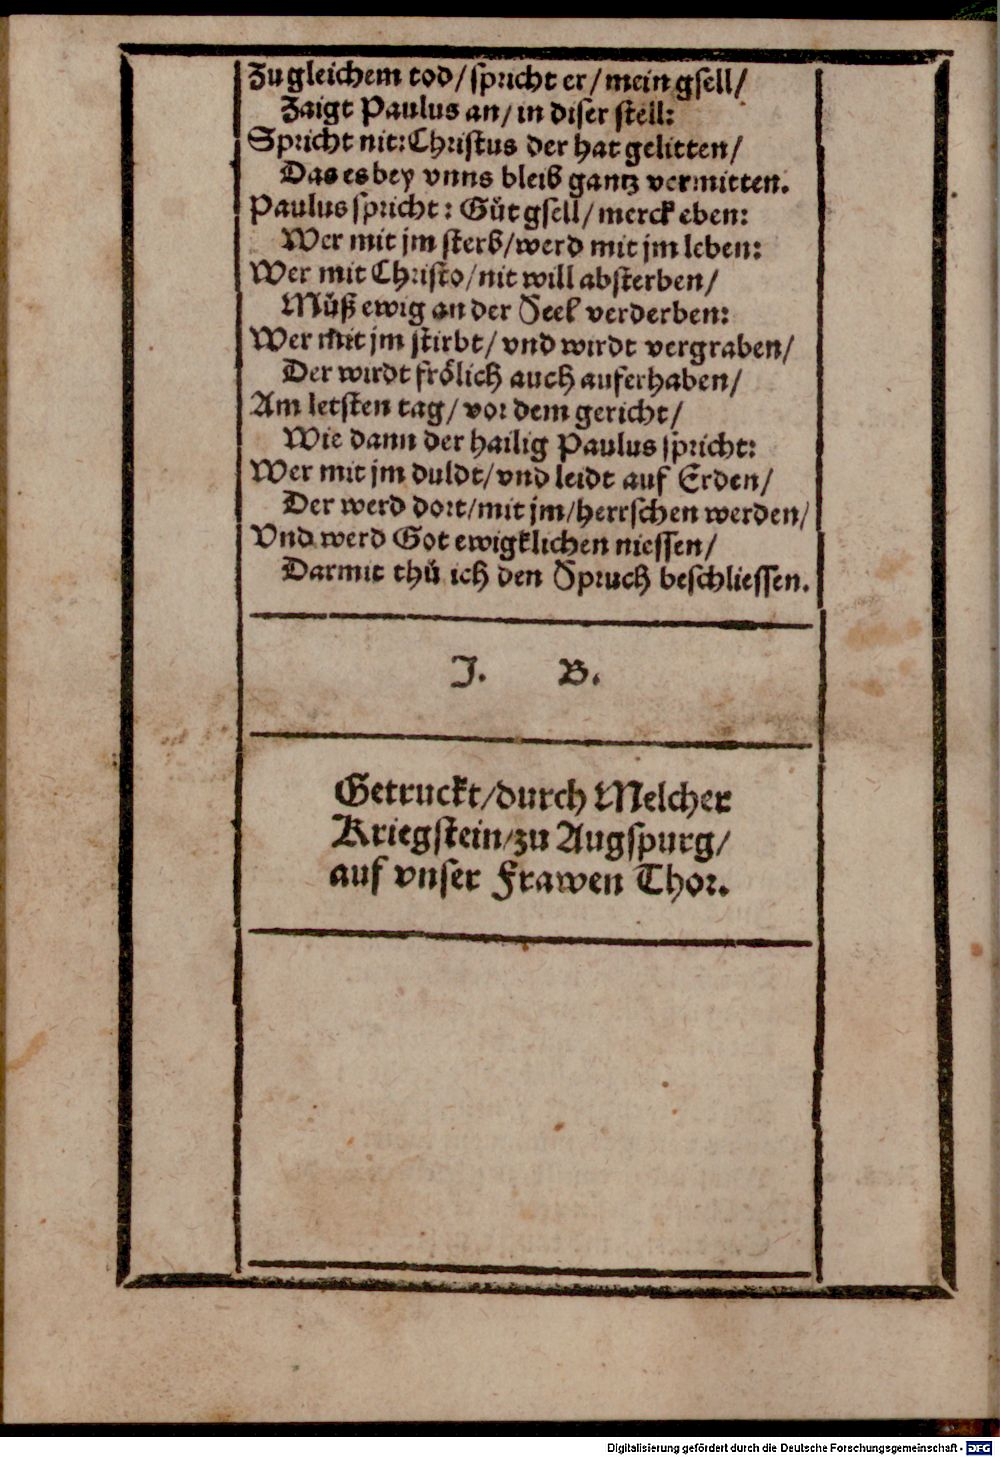 Zu gleichem tod/ spricht er/ mein gsell/
Zaigt Paulus an/ in diser stell:
Spricht nit: Christus der hat gelitten/
Das es bey vnns bleib gantz vermitten.
Paulus spricht: Gůt gsell/ merck eben:
Wer mit jm sterb/ werd mit jm leben:
Wer mit Christo/ nit will absterben/
Můß ewig an der Seel verderben:
Wer mit jm stirbt/ vnd wirdt vergraben/
Der wirdt frölich auch auferhaben/
Am letsten tag/ vor dem gericht/
Wie dann der hailig Paulus spricht:
Wer mit jm duldt/ vnd leidt auf Erden/
Der werd dort/ mit jm/ herrschen werden/
Vnd werd Got ewigklichen niessen/
Darmit thů ich den Spruch beschliessen.
J. B.
Getruckt/ durch Melcher
Kriegstein/ zu Augspurg/
auf vnser Frawen Thor.
Digitalisierung gefördert durch die Deutsche Forschungsgemeinschaft - DFG